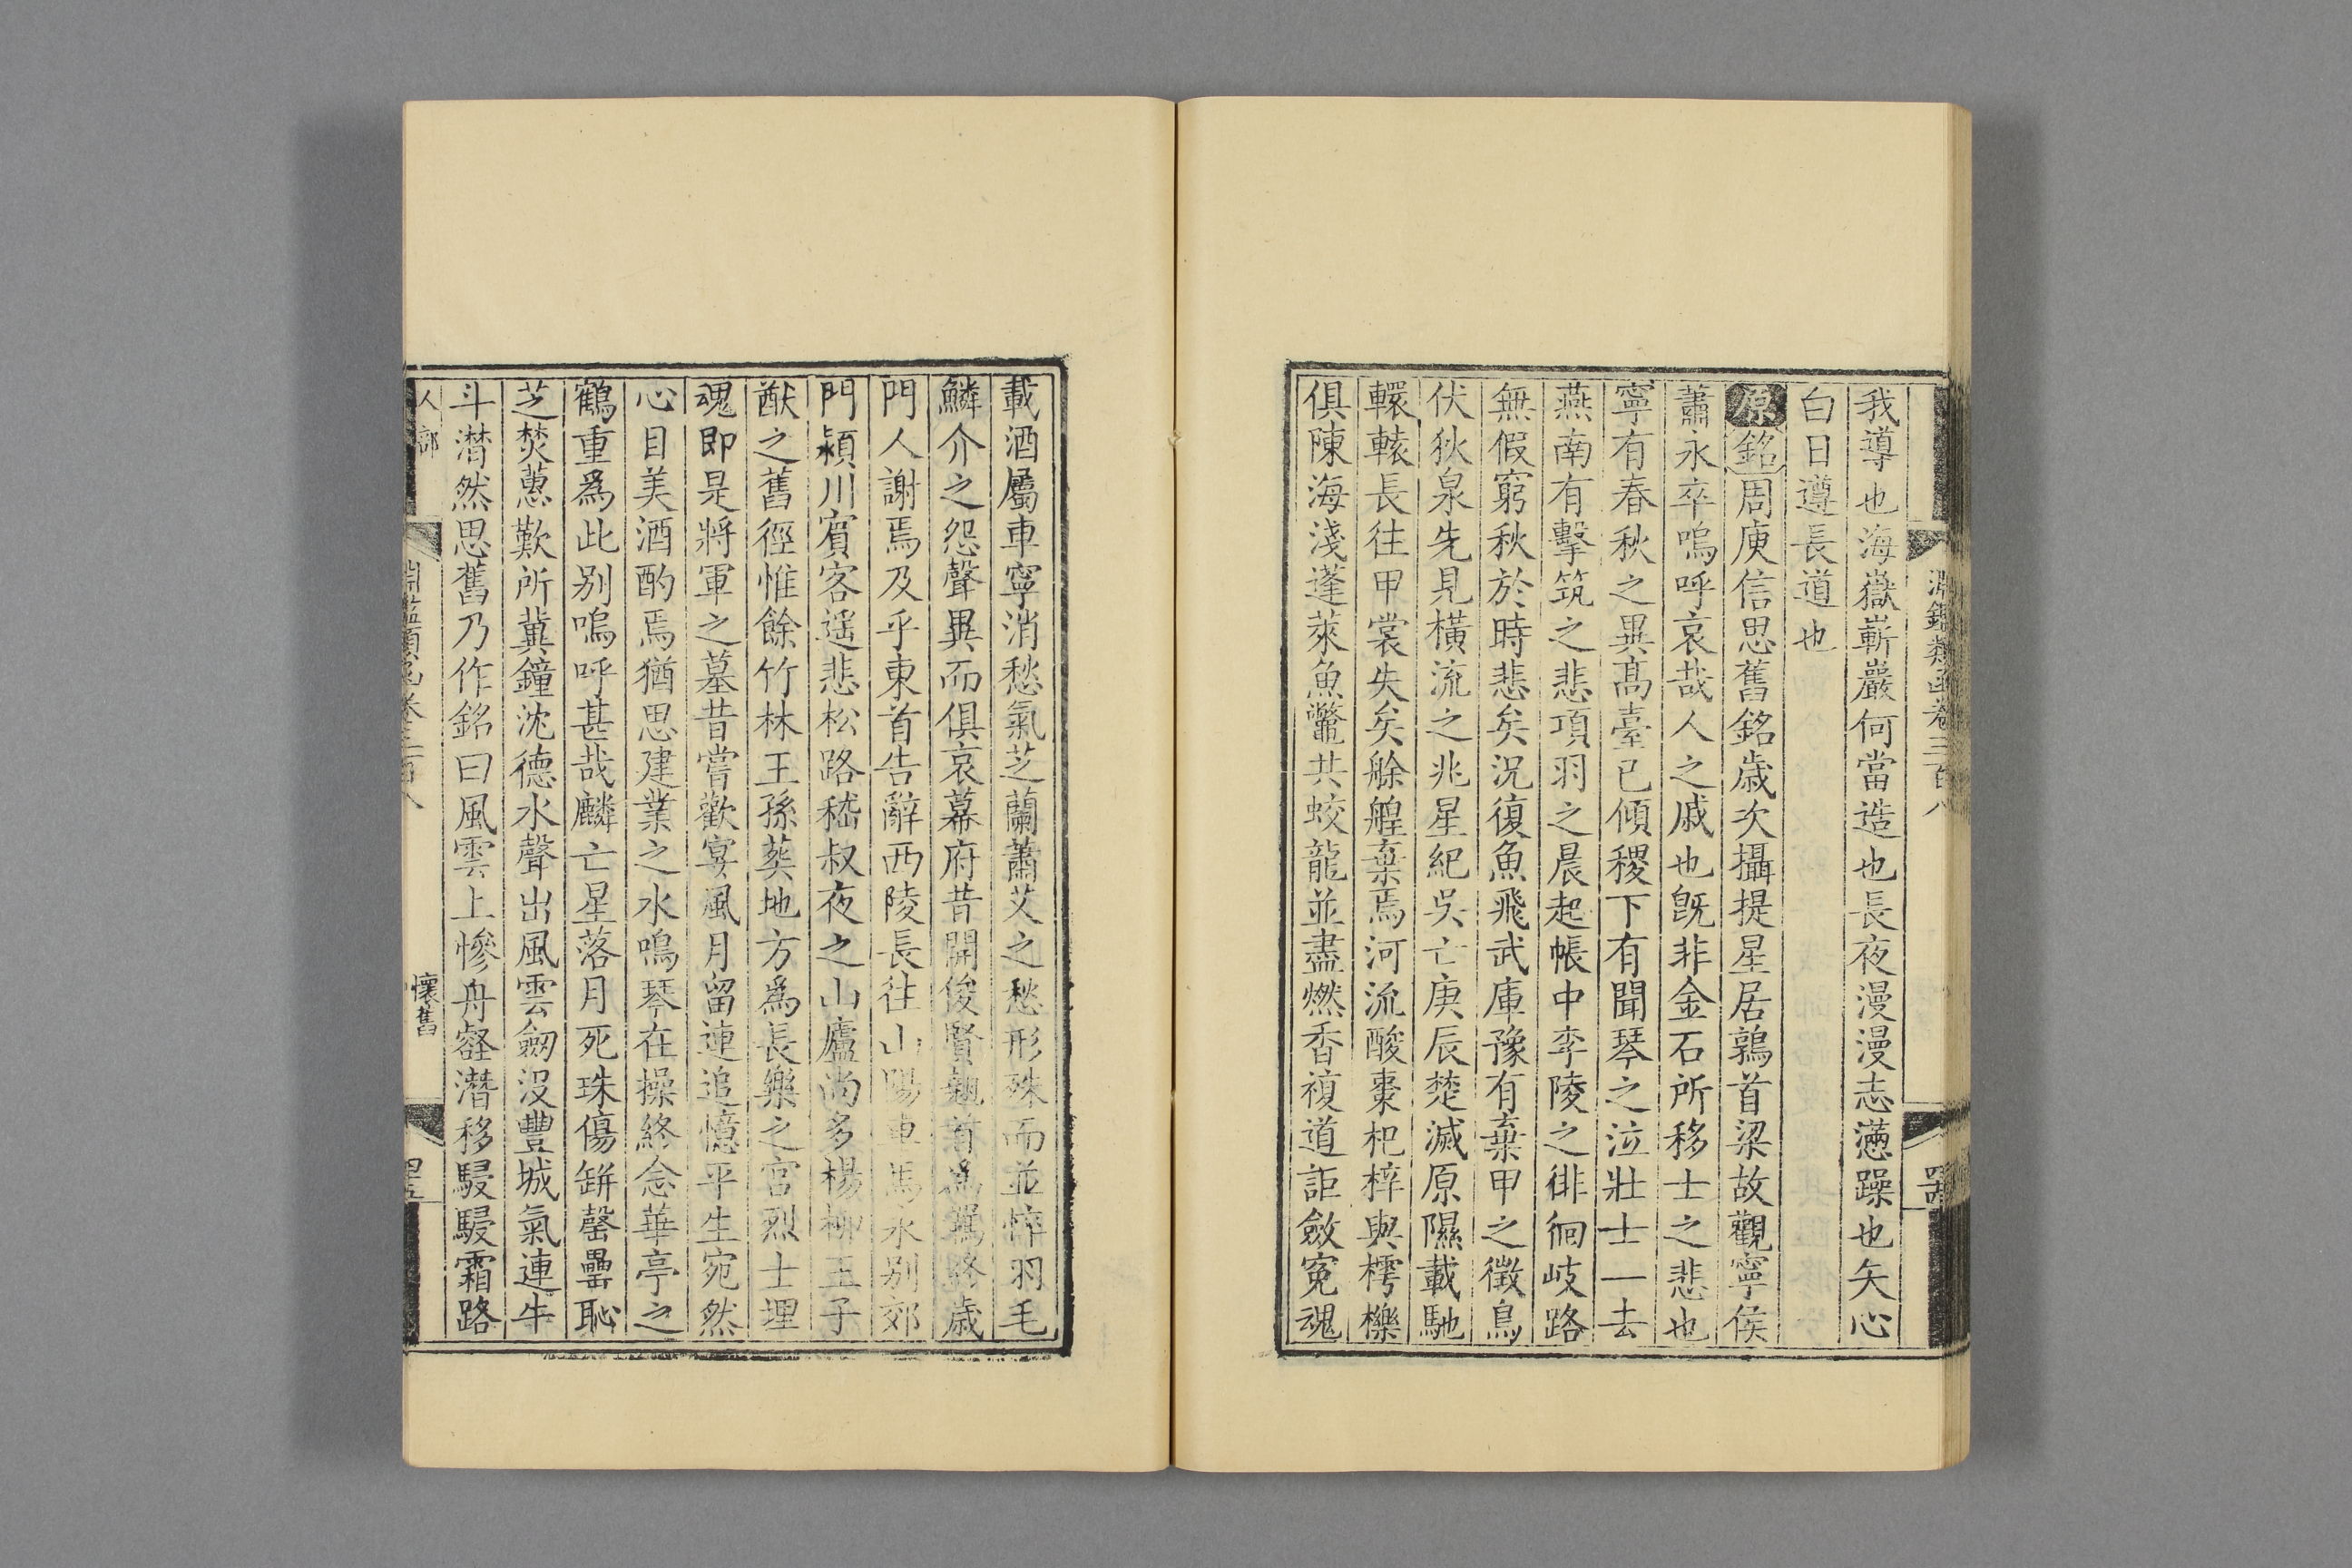 淵鑑類函卷三百八
我導也海嶽嶄巖何當造也長夜漫漫志懣躁也矢心
白日遵長道也
原銘周庾信思舊銘歲次攝提星居鶉首梁故觀寧侯
蕭永卒嗚呼哀哉人之戚也旣非金石所移士之悲也
寧有春秋之異髙臺已傾稷下有聞琴之泣壯士一去
燕南有擊筑之悲項羽之晨起帳中李陵之徘徊岐路
無假窮秋於時悲矣况復魚飛武庫豫有棄甲之徵鳥
伏狄泉先見橫流之兆星紀吳亡庚辰楚滅原隰載馳
轘轅長往甲裳失矣艅艎棄焉河流酸棗杞梓與樗櫟
俱陳海淺蓬萊魚鼈共蛟龍並盡燃香複道詎斂寃魂
載酒屬車寧消愁氣芝蘭蕭艾之愁形殊而並悴羽毛
鱗介之怨聲異而俱哀幕府昔開俊賢翹首爲羈終歲
門人謝焉及乎東首告辭西陵長往山陽車馬永别郊
門潁川賓客遥悲松路嵇叔夜之山廬尚多楊柳王子
猷之舊徑惟餘竹林王孫葬地方爲長樂之宫烈士埋
魂即是將軍之墓昔嘗歡宴風月留連追憶平生宛然
心目美酒酌焉猶思建業之水鳴琴在操終念華亭之
鶴重爲此别嗚呼甚哉麟亡星落月死珠傷缾罄罍恥
芝焚蕙歎所冀鐘沈德水聲出風雲劒沒豐城氣連牛
斗潸然思舊乃作銘曰風雲上慘舟壑潛移駸駸霜路
人部
淵鑑類函卷三百八
懷舊